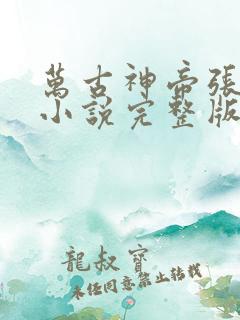 萬古神帝張
小說完整版
龍叔寶
未經同意禁止轉載